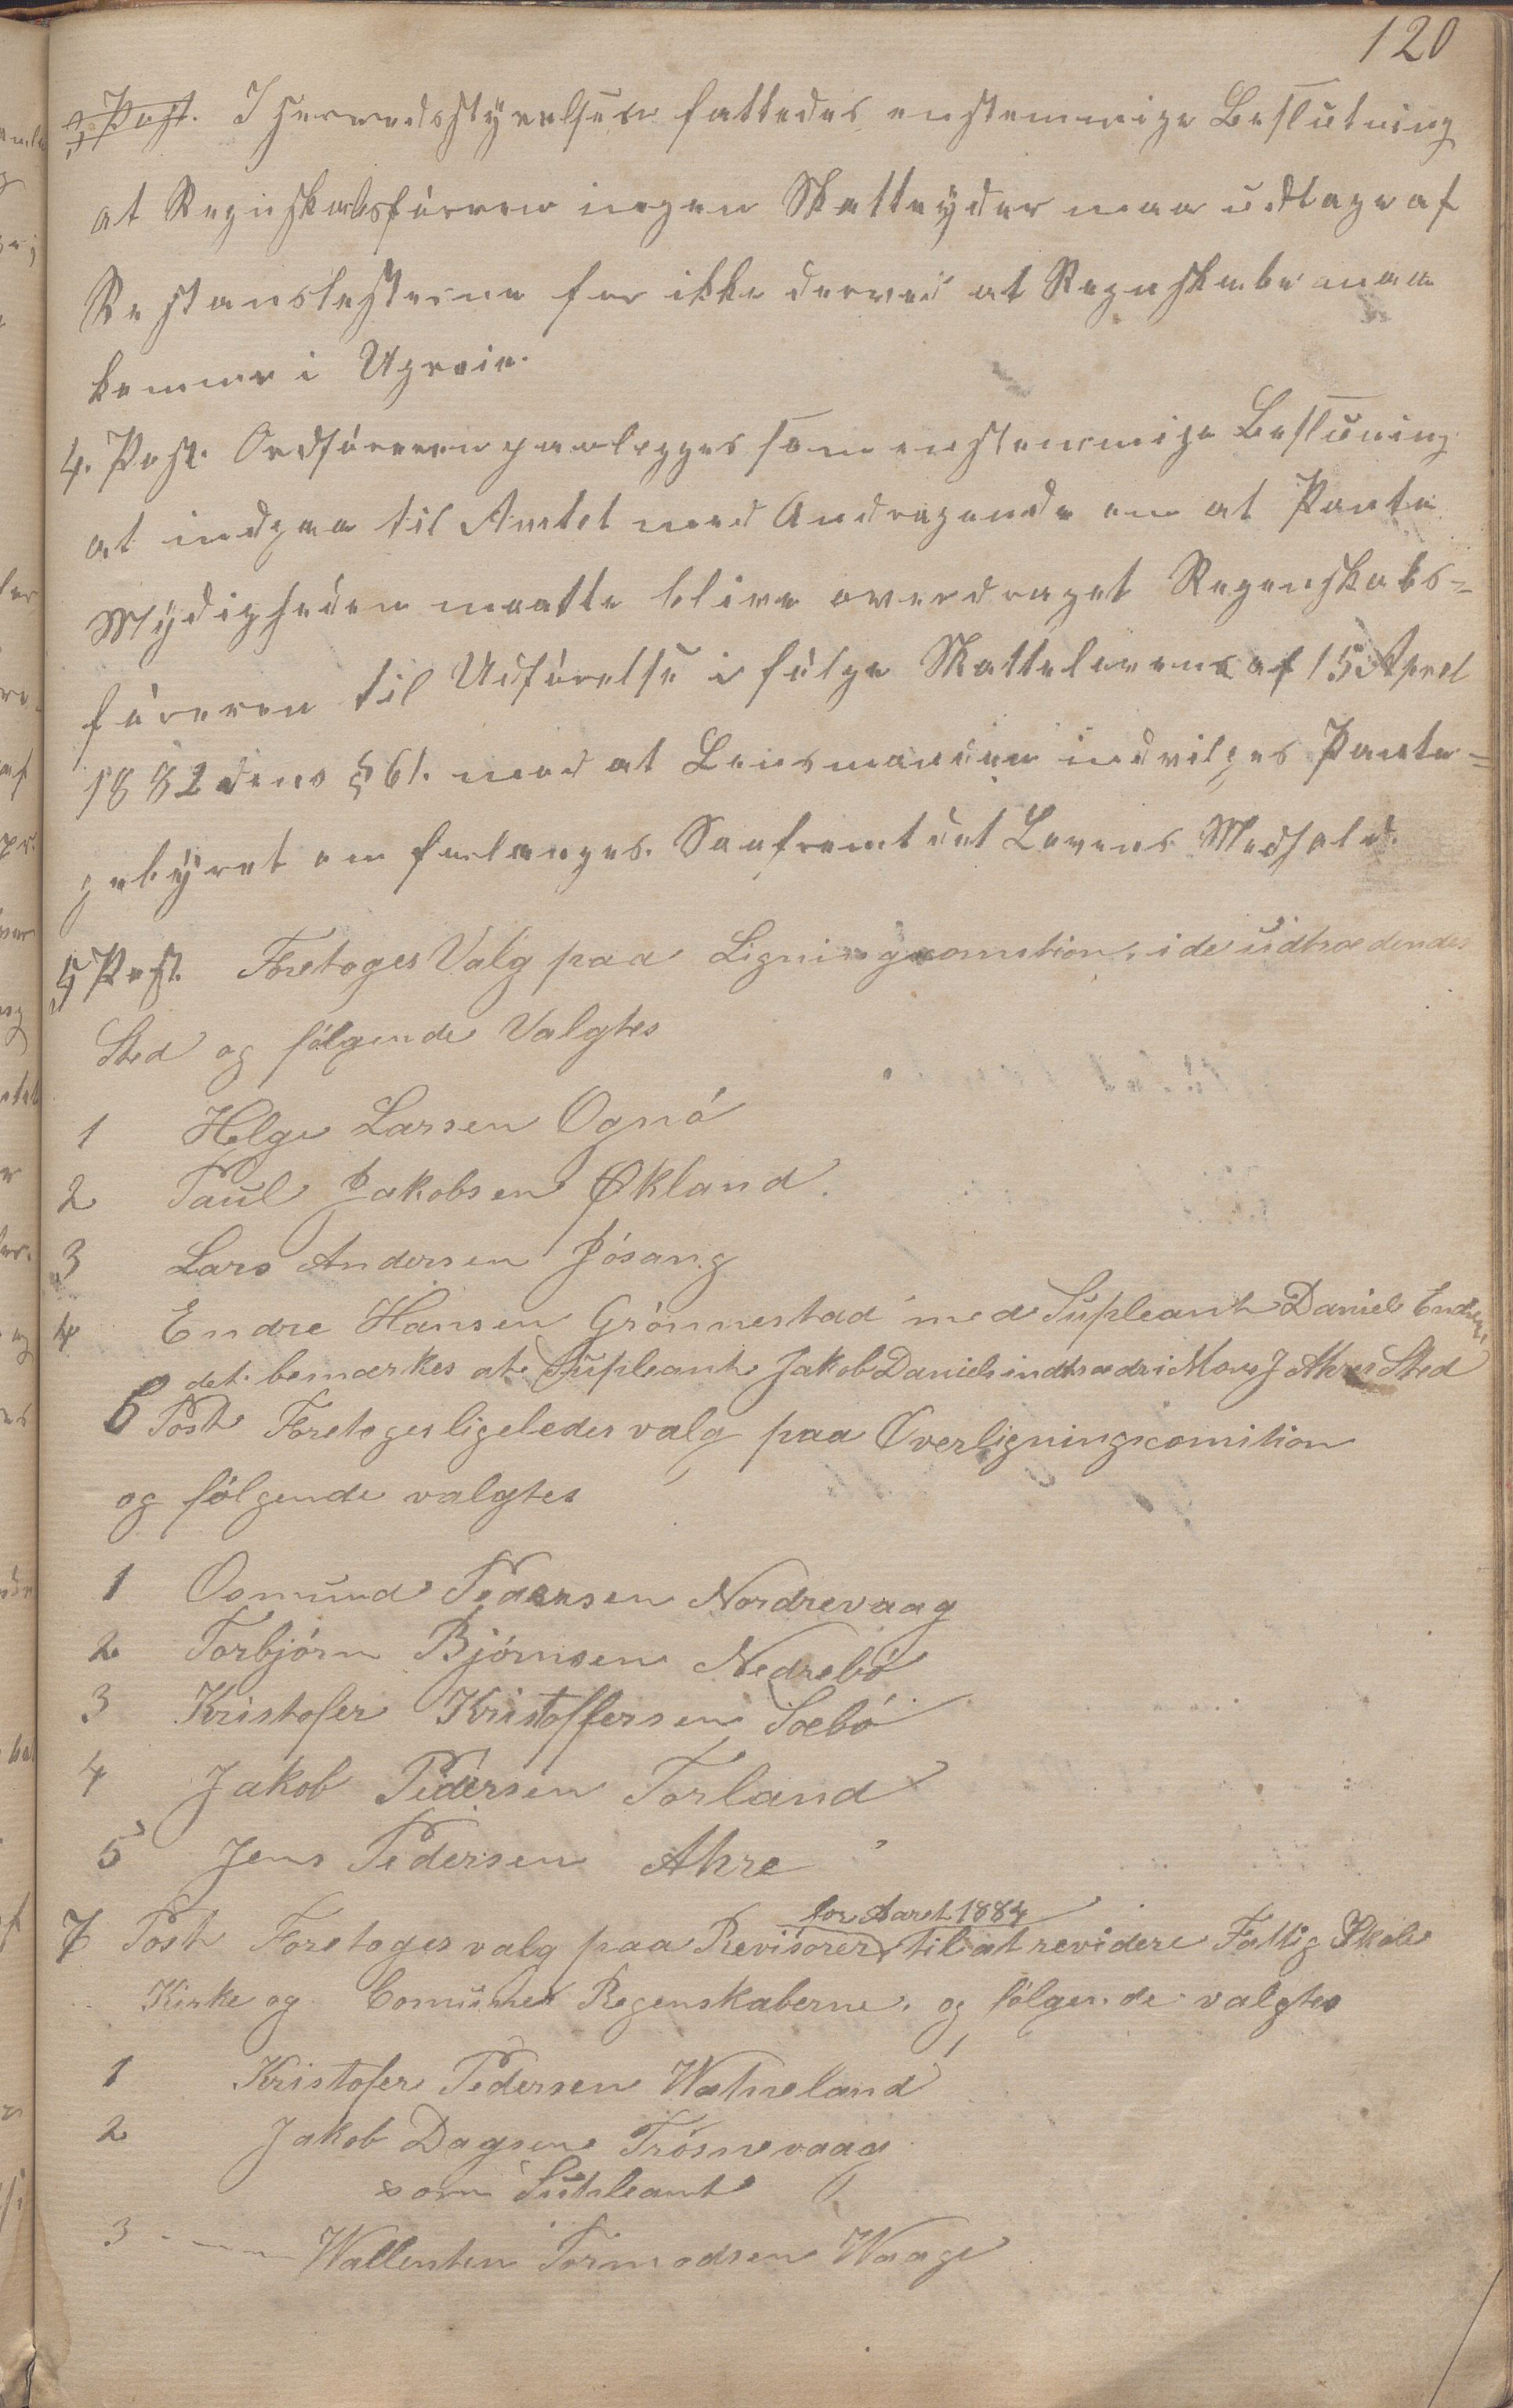 120
3 Post. I Herredsstyrelsen fattedes enstemmige Beslutning
at Regnskabsføreren ingen Skatteyder maa udtage af
Restanslesterne for ikke derved at Regnskabe maa
komme i Ugreie.
4. Post. Ordføreren paalegges som enstemmige Beslutning
at indgaa til Amtet med Andragende om at Pante
Mydigheden maatte blive overdraget Regenskabs-
føreren til Udførelse i følge Skattelovens af 15 April
1882 dens § 61. mod at Lensmanden indvilges Pante-
gebyret om forlanges. Saafremt det Lovens Medhold.
5 Post. Foretoges Valg paa Ligningscomition, i de udtrædendes
Sted og følgende Valgtes
1 Helge Larsen Ognó
2 Paul Jakobsen Økland.
3 Lars Andersen Jósang
4 Endre Hansen Grónnestad med Supleant Daniel Endres.
det bemærkes at Supleant Jakob Daniels indtræder i Mons J Ahres Sted
6 Post Foretoges ligeledes valg paa Overligningscomition
og fólgende valgtes
1 Osmund Pedersen Nordrevaag
2 Torbjórn Bjórnsen Nedrebó
3 Kristofer Kristoffersen Sæbó
4 Jakob Pedersen Torland
5 Jens Pedersen Ahre
for Aaret 1884
7 Post Foretoges valg paa Revisorer til at revidere Fattig Skole
Kirke og Comunes Regenskaberne. og fólgende valgtes
1 Kristofer Pedersen Watneland
2 Jakob Dagsen Trósnevaag
som Supleant
3 Wallentin Tormodsen Waage